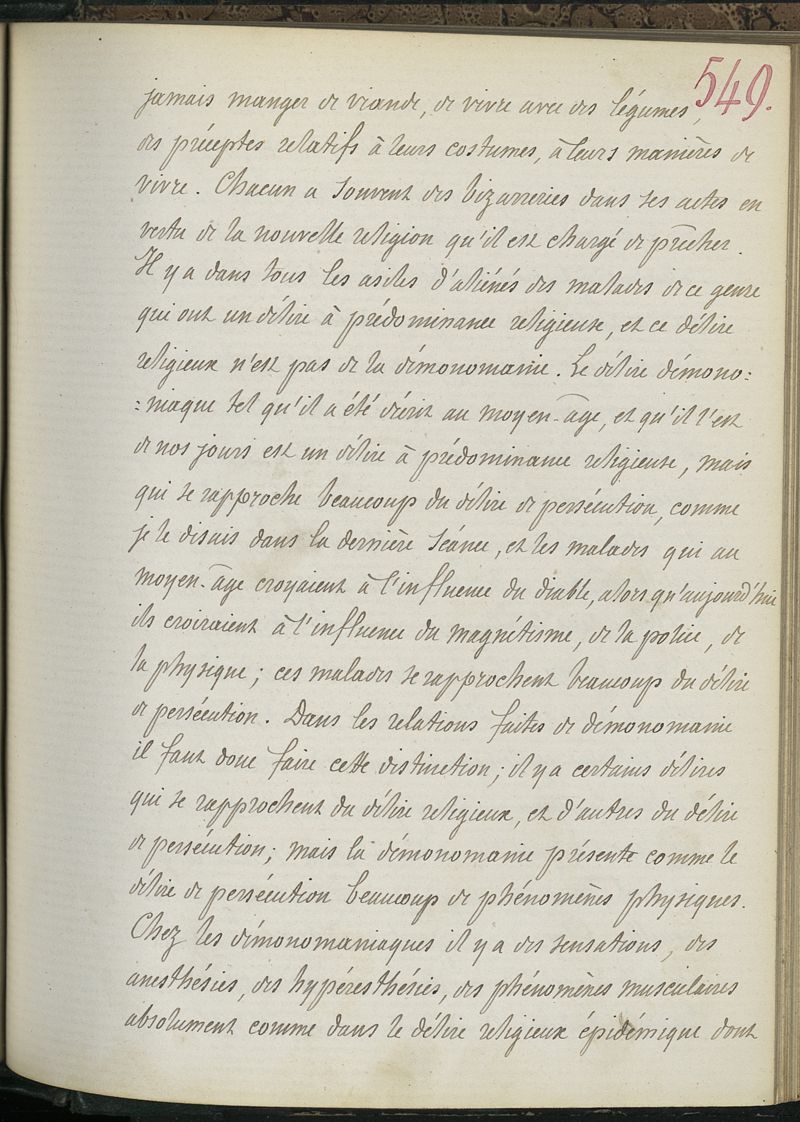 549.
jamais manger de viande, de vivre avec des légumes,
des préceptes relatifs à leurs costumes, à leurs manières de
vivre. Chacun a souvent des bizarreries dans ses actes en
vertu de la nouvelle religion qu'il est chargé de prêcher.
Il y a dans tous les asiles d'aliénés des malades de ce genre
qui ont un délire à prédominance religieuse, et ce délire
religieux n'est pas de la démonomanie. Le délire démono=
=niaque tel qu'il a été décrit au moyen-âge, et qu'il l'est
de nos jours est un délire à prédominance religieuse, mais
qui se rapproche beaucoup du délire de persécution, comme
je le disais dans la dernière séance, et les malades qui au
moyen-âge croyaient à l'influence du diable, alors qu'aujourd'hui
ils croiraient à l'influence du magnétisme, de la police, de
la physique; ces malades se rapprochent beaucoup du délire
de persécution. Dans les relations faites de démonomanie
il faut donc faire cette distinction; il y a certains délires
qui se rapprochent du délire religieux, et d'autres du délire
de persécution; mais la démonomanie présente comme le
délire de persécution beaucoup de phénomènes physiques.
Chez les démonomaniaques il y a des sensations, des
anesthésies, des hypéresthésies, des phénomènes musculaires
absolument comme dans le délire religieux épidémique dont